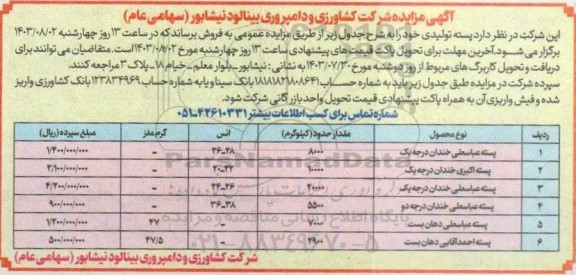 آگهی مزایده شرکت کشاورزی و دامپروری بینالود نیشابور (سهامی عام)
این شرکت در نظر دارد پسته تولیدی خود را به شرح جدول زیر از طریق مزایده عمومی به فروش برساند که در ساعت ۱۳ روز چهارشنبه ۱۴۰۳/۰۸/۰۲
برگزار می‌شود. آخرین مهلت برای تحویل پاکت قیمت های پیشنهادی ساعت ۱۳ روز چهارشنبه مورخ ۱۴۰۳/۰۸/۰۲ است. متقاضیان می توانند برای
دریافت و تحویل کاربرگ های مربوط از روز دوشنبه مورخ ۱۴۰۳/۰۷/۳۰ به نشانی : نیشابور_بلوار معلم_خیام ۱۸_پلاک ۳ مراجعه کنند.
سپرده شرکت در مزایده طبق جدول زیر باید به شماره حساب ۱۸۱۸۱۸۲۱۸۰۸۶۴۱ بانک سینا و یا به شماره حساب ۱۲۳۸۳۴۹۶۹ بانک کشاورزی واریز
شده و فیش واریزی آن به همراه پاکت پیشنهادی قیمت تحویل واحد بازرگانی شرکت شود.
شماره تماس برای کسب اطلاعات بیشتر ۴۲۶۱۰۳۳۱-۰۵۱
ردیف نوع محصول مقدار حدود (کیلوگرم) انس گرم مغز مبلغ سپرده (ریال)
۱ پسته عباسعلی خندان درجه یک ۸۰۰۰ ۲۸_۲۶ _ ۱/۴۰۰/۰۰۰/۰۰۰
۲ پسته اکبری خندان درجه یک ۱۰۰۰۰ ۲۲_۲۰ _ ۲/۱۰۰/۰۰۰/۰۰۰
۳ پسته عباسعلی خندان درجه یک ۲۰۰۰۰ ۲۶_۲۴ _ ۴/۲۰۰/۰۰۰/۰۰۰
۴ پسته عباسعلی خندان درجه دو ۵۵۰۰ ۳۸_۳۶ _ ۹۰۰/۰۰۰/۰۰۰
۵ پسته عباسعلی دهان بست ۷۰۰۰ _ ۴۷ ۱/۲۰۰/۰۰۰/۰۰۰
۶ پسته احمدآقایی دهان بست ۲۹۰۰ _ ۴۷/۵ ۵۰۰/۰۰۰/۰۰۰
شرکت کشاورزی و دامپروری بینالود نیشابور (سهامی عام)
ParsNamadData
پایگاه اطلاع رسانی مناقصه و مزایده
۰۲۱-۸۸۳۴۹۶۷۰-۵